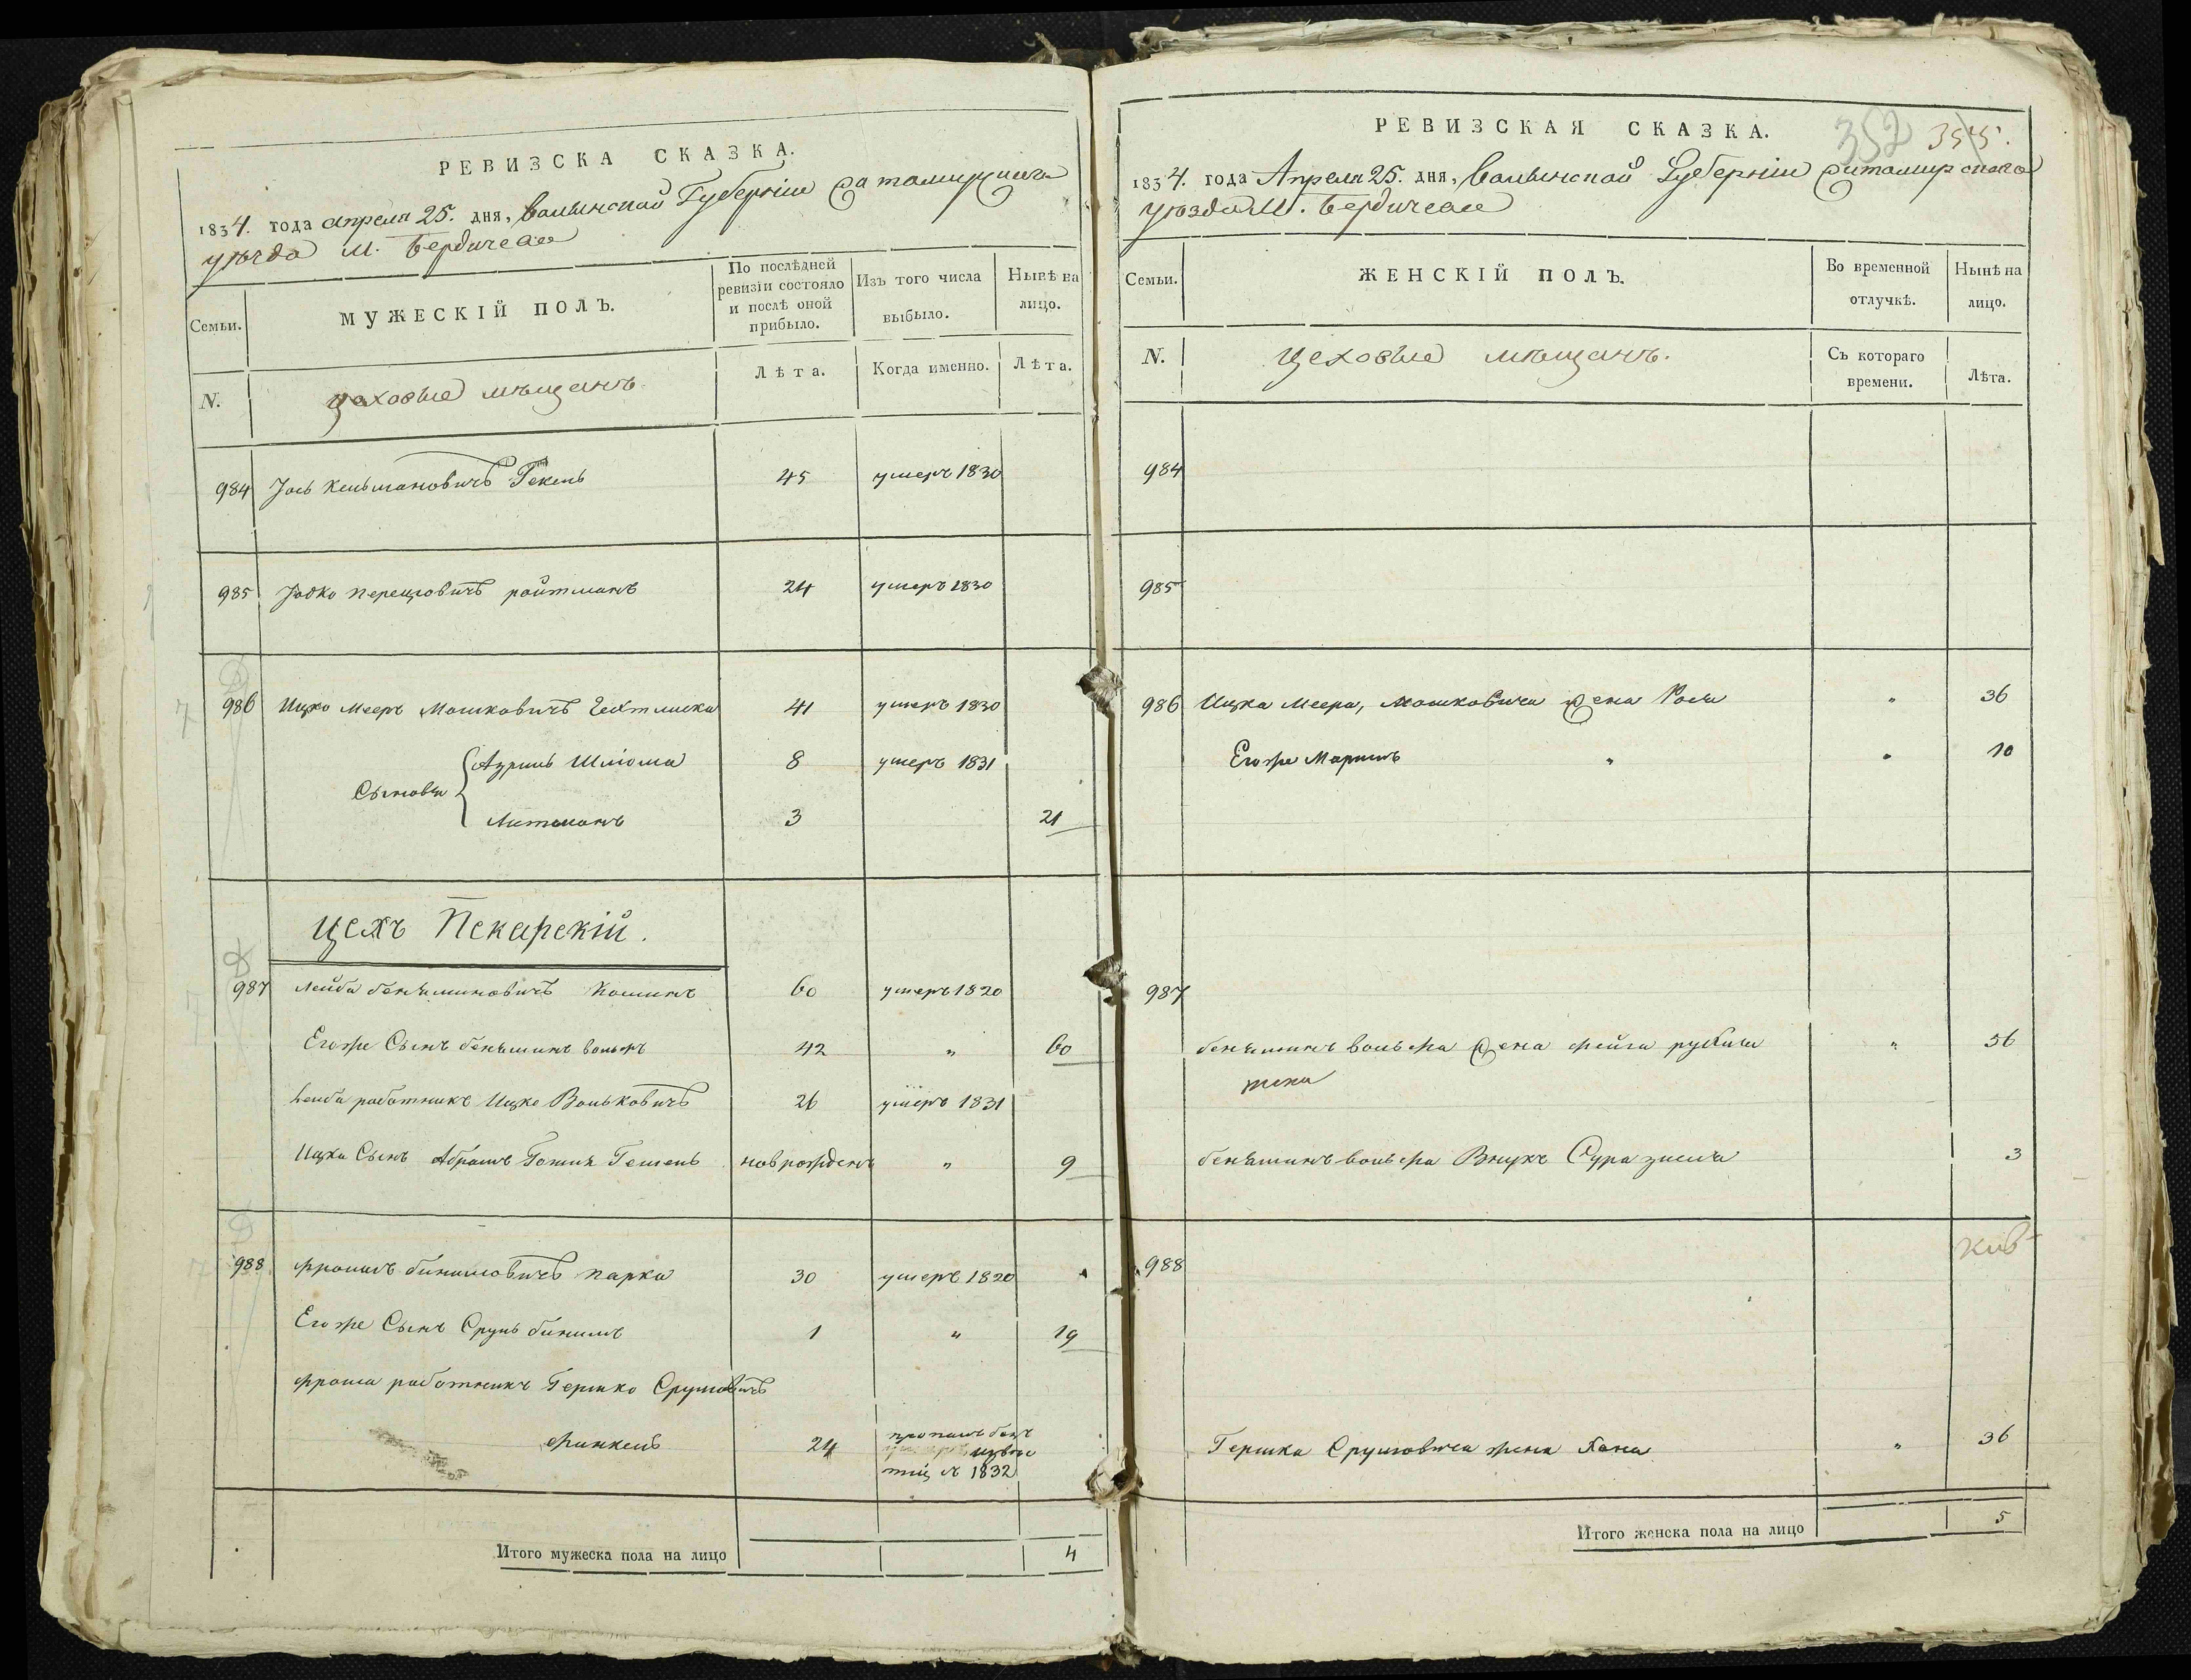 РЕВИЗСКА СКАЗКА.
1834. года апреля 25. дня, Волынской Губерніи Житомирскаго
уѣзда М. Бердичева
Семьи.
МУЖЕСКІЙ ПОЛЪ.
По послѣдней ревизіи состояло и послѣ оной прибыло.
Изъ того числа выбыло.
Нынѣ на лицо.
N.
цеховые мѣщанъ.
Лѣта.
Когда именно.
Лѣта.
984 Іось Кельмановичъ Гекель 45 умеръ 1830
985 Іовко Перецовичъ ройтманъ 24 умеръ 1830
986 Ицко Мееръ Мошковичъ 41 умеръ 1830
Сыновья
Азриль Шліома 8 умеръ 1831
Литманъ 3 21
цехъ Пекарскій.
987 Лейба бенъяминовичъ 60 умеръ 1820
Егоже Сынъ бенъяминъ вольфъ 42 " 60
Лейба работникъ Ицко Вольковичъ 26 умеръ 1831
Ицка Сынъ Абрамъ 
новрожденъ " 9
988 фроимъ бинимовичъ парка 30 умеръ 1820
Егоже Сынъ Сруль бинимъ 1 " 19
фроима работникъ Гершко Срулевичъ
финкель 24 пропалъ безъ
извѣс
тій въ 1832
Итого мужеска пола на лицо 4
РЕВИЗСКАЯ СКАЗКА.
352 355.
1834. года Апреля 25. дня, Волынской Губерніи Житомирскаго
уѣзда М. Бердичева
Семьи.
ЖЕНСКІЙ ПОЛЪ.
Во временной отлучкѣ.
Нынѣ на лицо.
N.
Цеховые мѣщанъ.
Съ котораго времени.
Лѣта.
984
985
986 Ицка Меера, Мошковича жена " 36
Егоже " " 10
987
бенъяминъ вольфа жена фейга " 56
бенъяминъ вольфа Внука Сура 3
988
Гершка Срулевича жена Хана " 36
Итого женска пола на лицо 5